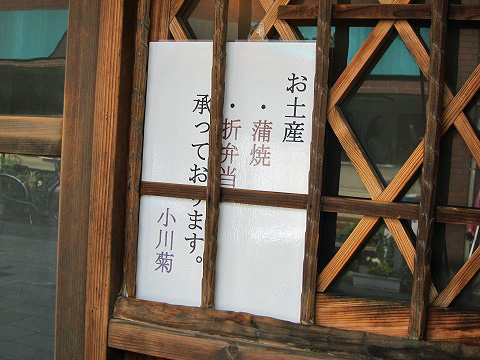 お土産
・蒲焼
・折弁当
承っております。
小川菊